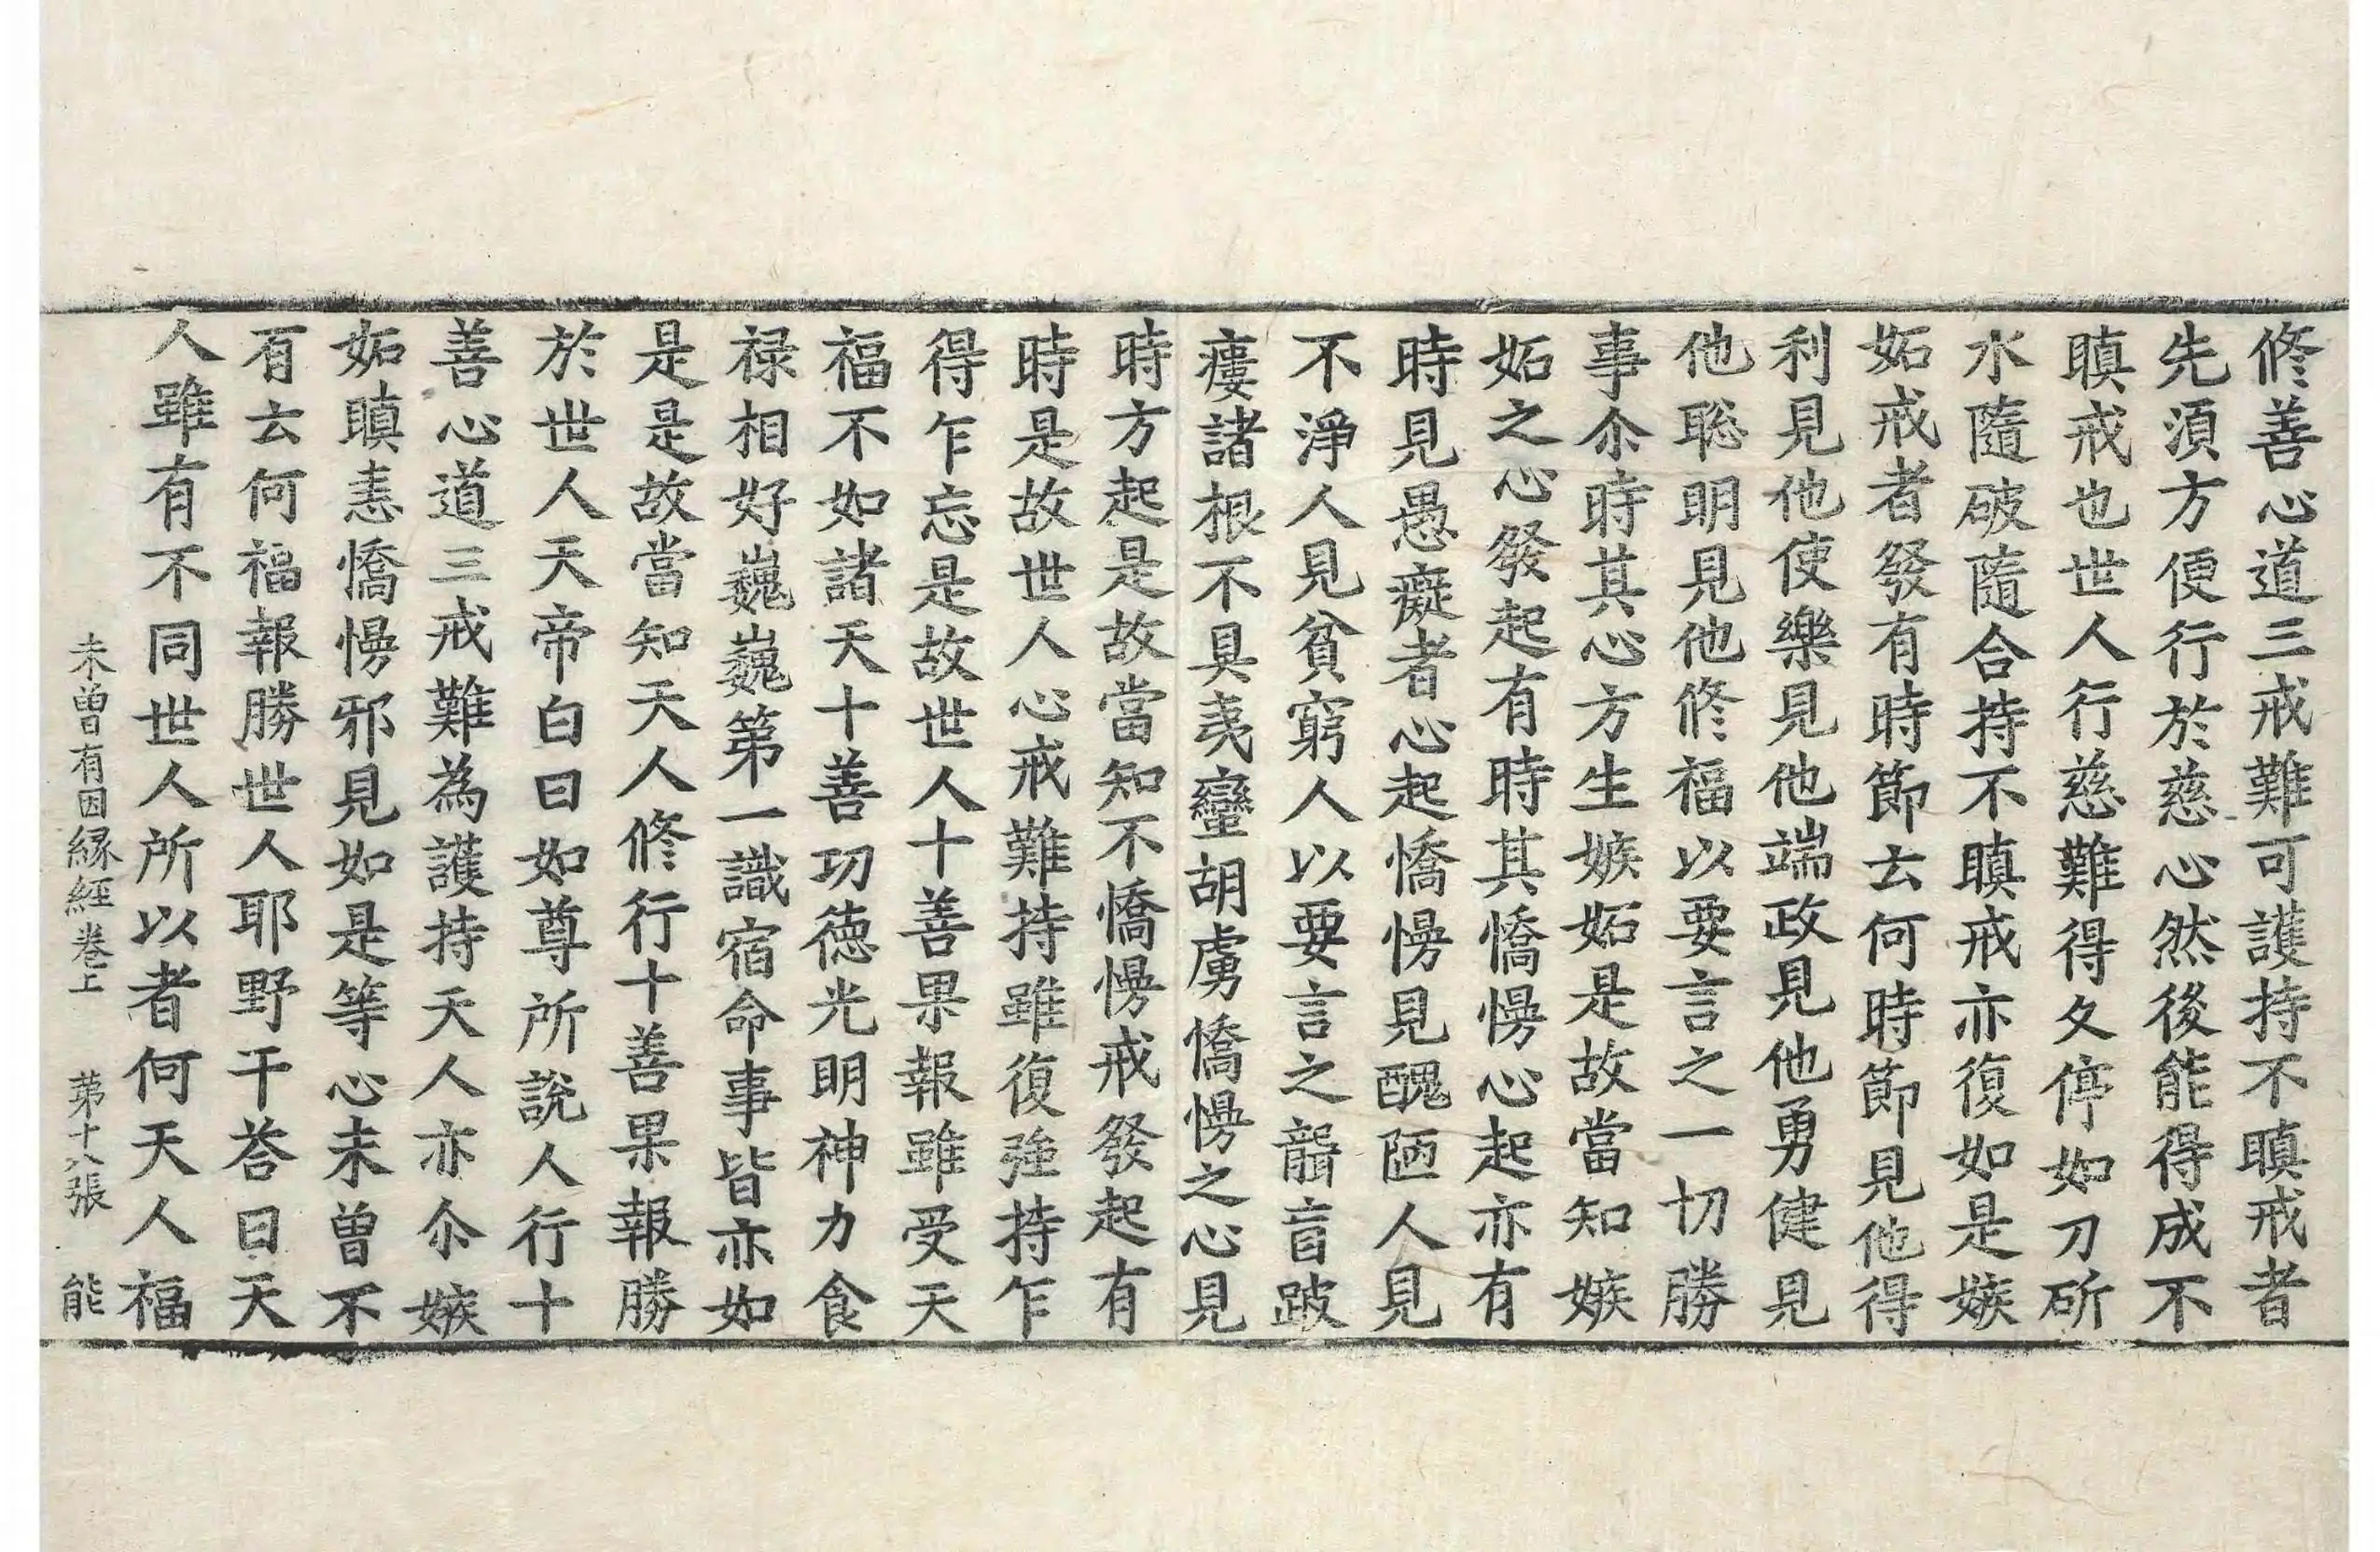 修善心道三戒難可護持不瞋戒者
先湏方便行於慈心然後能得成不
瞋戒也世人行慈難得久停如刀斫
水隨破隨合持不瞋戒亦復如是嫉
妬戒者發有時節去何時節見他得
利見他使樂見他端政見他勇健見
他聡明見他修福以要言之一切勝
事尒時其心方生嫉妬是故當知嫉
妬之心發起有時其憍慢心起亦有
時見愚癡者心起憍慢見醜陋人見
不淨人見貧窮人以要言之聾盲跛
瘻諸根不具夷蠻胡虜憍慢之心見
時方起是故當知不憍慢戒發起有
時是故世人心戒難持雖復強持乍
得乍忘是故世人十善果報雖受天
福不如諸天十善功徳光明神力食
禄相好巍巍第一識宿命事皆亦如
是是故當知天人修行十善果報勝
於世人天帝白曰如尊所說人行十
善心道三戒難為護持天人亦尒嫉
妬瞋恚憍慢邪見如是等心未曾不
有云何福報勝世人耶野干荅曰天
人雖有不同世人所以者何天人福
未曽有因縁経巻上 第十八張 能